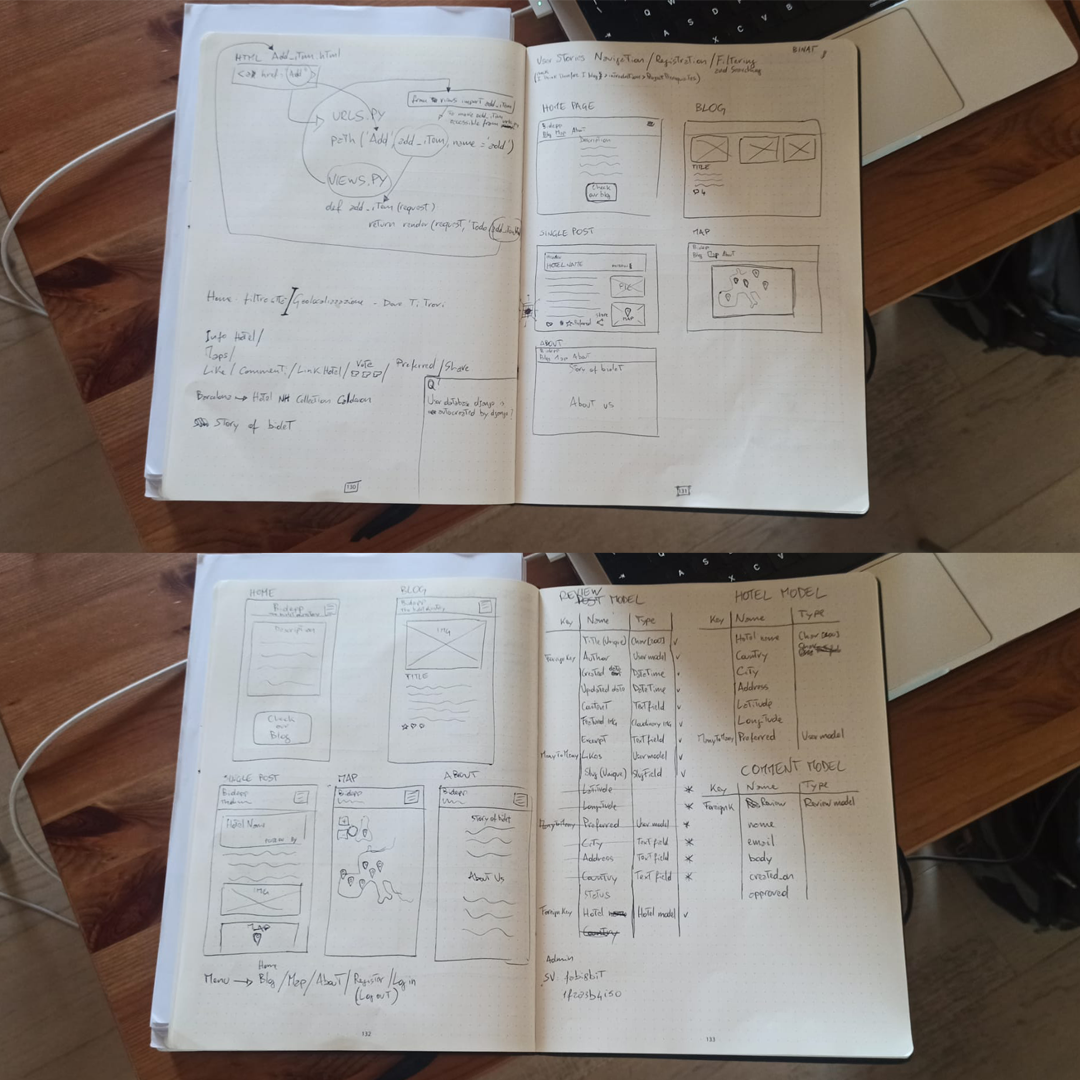 HTML Add_item.html
<a href="Add">
from views import add_item
To make add_item
accessible from
URLS.PY
path ('Add', add_item, name = 'add')
VIEWS.PY
def add_item (request)
return render (request, 'Todo/
Home: Filtrete / Geolocalizzazione - Dove Ti Trovi
Info Hotel /
Maps /
Like / Comment / Link Hotel / Vote / Preferred / Share
Barcelona → Hotel NH Collection Calderon
Story of bidet
Q?
User database django is
autocreated by django?
130
User Stories Navigation / Registration / Filtering
and Searching
HOME PAGE
Bidapp
Blog Map About
Description
Check
our blog
BLOG
TITLE
SINGLE POST
HOTEL NAME
PIC
MAP
MAP
Bidapp
Blog Map About
ABOUT
Bidapp
Blog Map About
Story of bidet
About us
131
HOME
Bidapp
Description
Check
our
Blog
BLOG
Bidapp
IMG
TITLE
SINGLE POST
Bidapp
Hotel Name
IMG
MAP
MAP
Bidapp
ABOUT
Bidapp
Story of bidet
About Us
Home
Menu → Blog / Map / About / Register / Login
(Logout)
132
REVIEW
POST MODEL
Key Name Type
Title (Unique) Char (200) ✓
Foreign Key Author User model ✓
Created date DateTime ✓
Updated date DateTime ✓
Content Textfield ✓
Featured IMG Cloudinary IMG ✓
Excerpt Textfield ✓
ManyToMany Likes User model ✓
Slug (Unique) SlugField ✓
Latitude *
Longitude *
ManyToMany Preferred User model *
City Text field *
Address Text field *
Country Text field *
Status
Foreign Key Hotel Hotel model ✓
Country
Admin
HOTEL MODEL
Key Name Type
Hotel name Char (200)
Country
City
Address
Latitude
Longitude
ManyToMany Preferred User model
COMMENT MODEL
Key Name Type
Foreign K Review Review model
name
email
body
created_on
approved
133